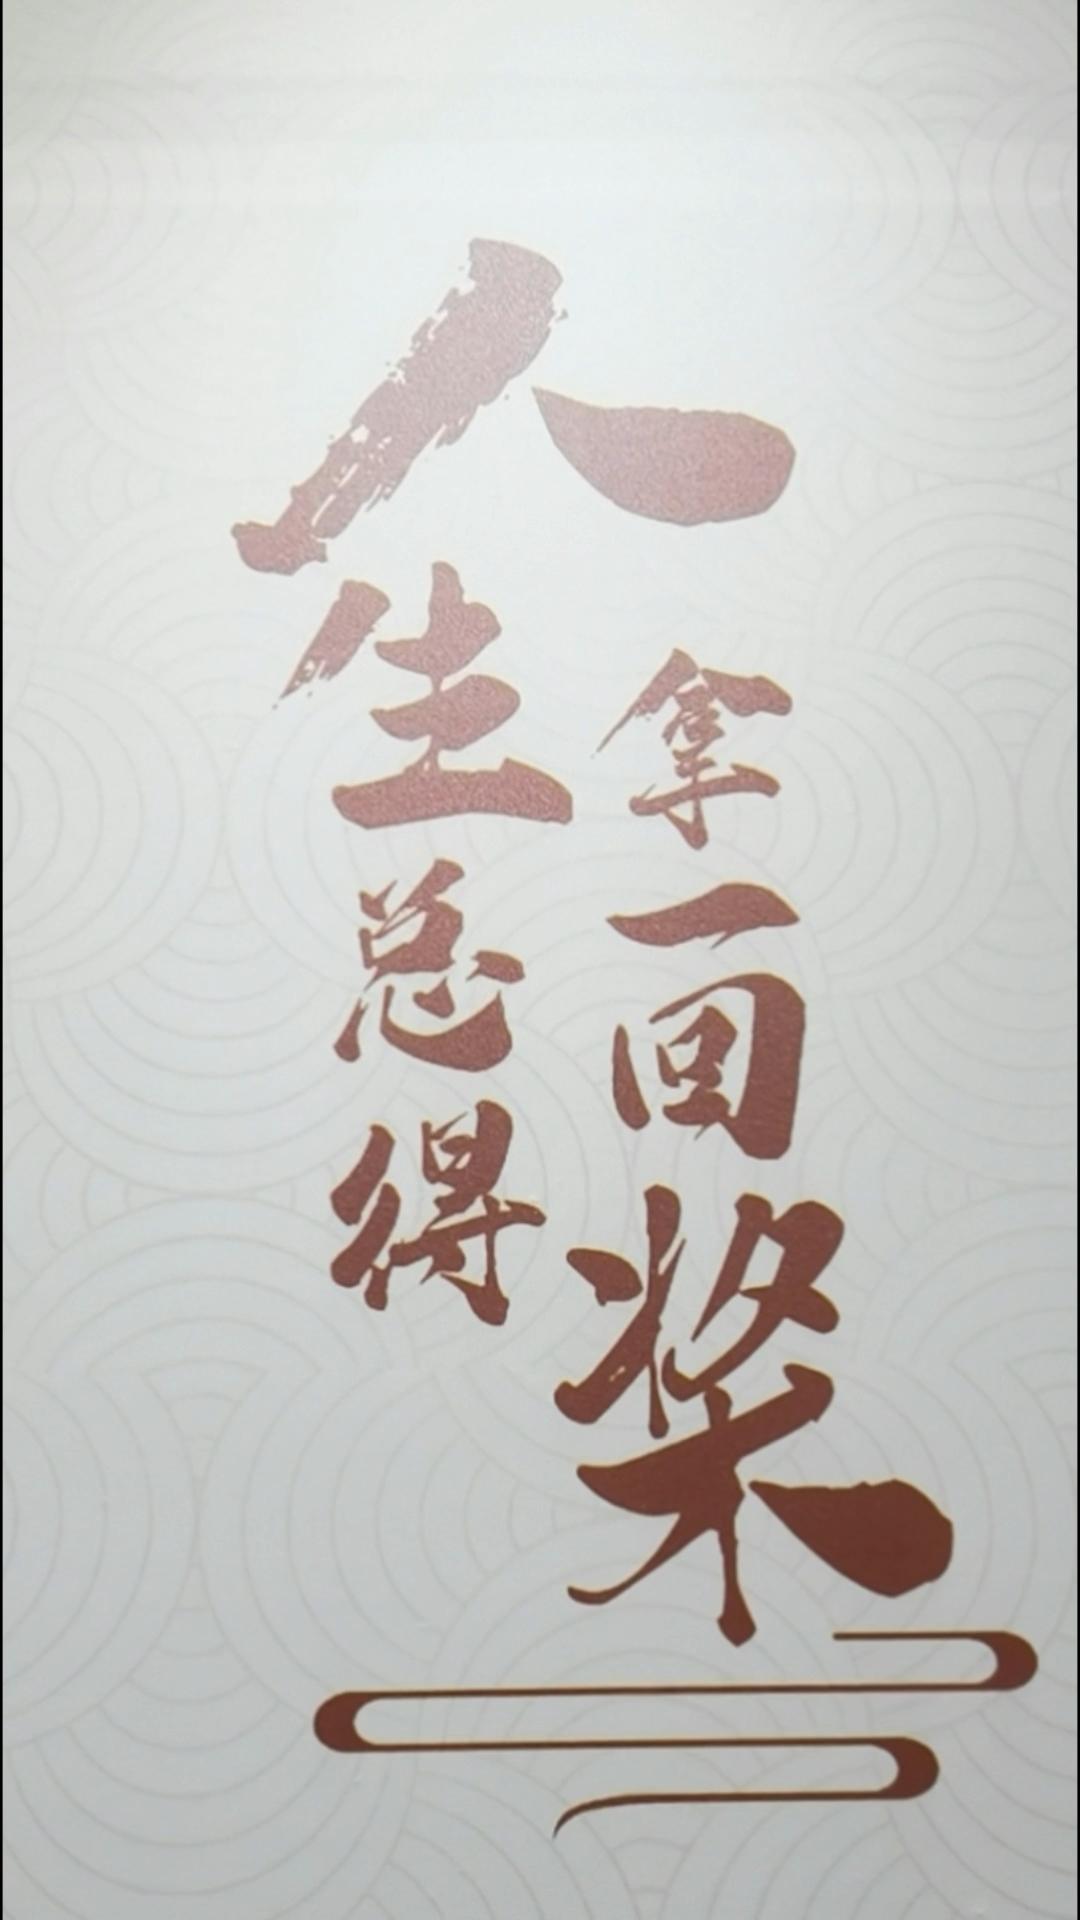 人生总得
拿一回桨